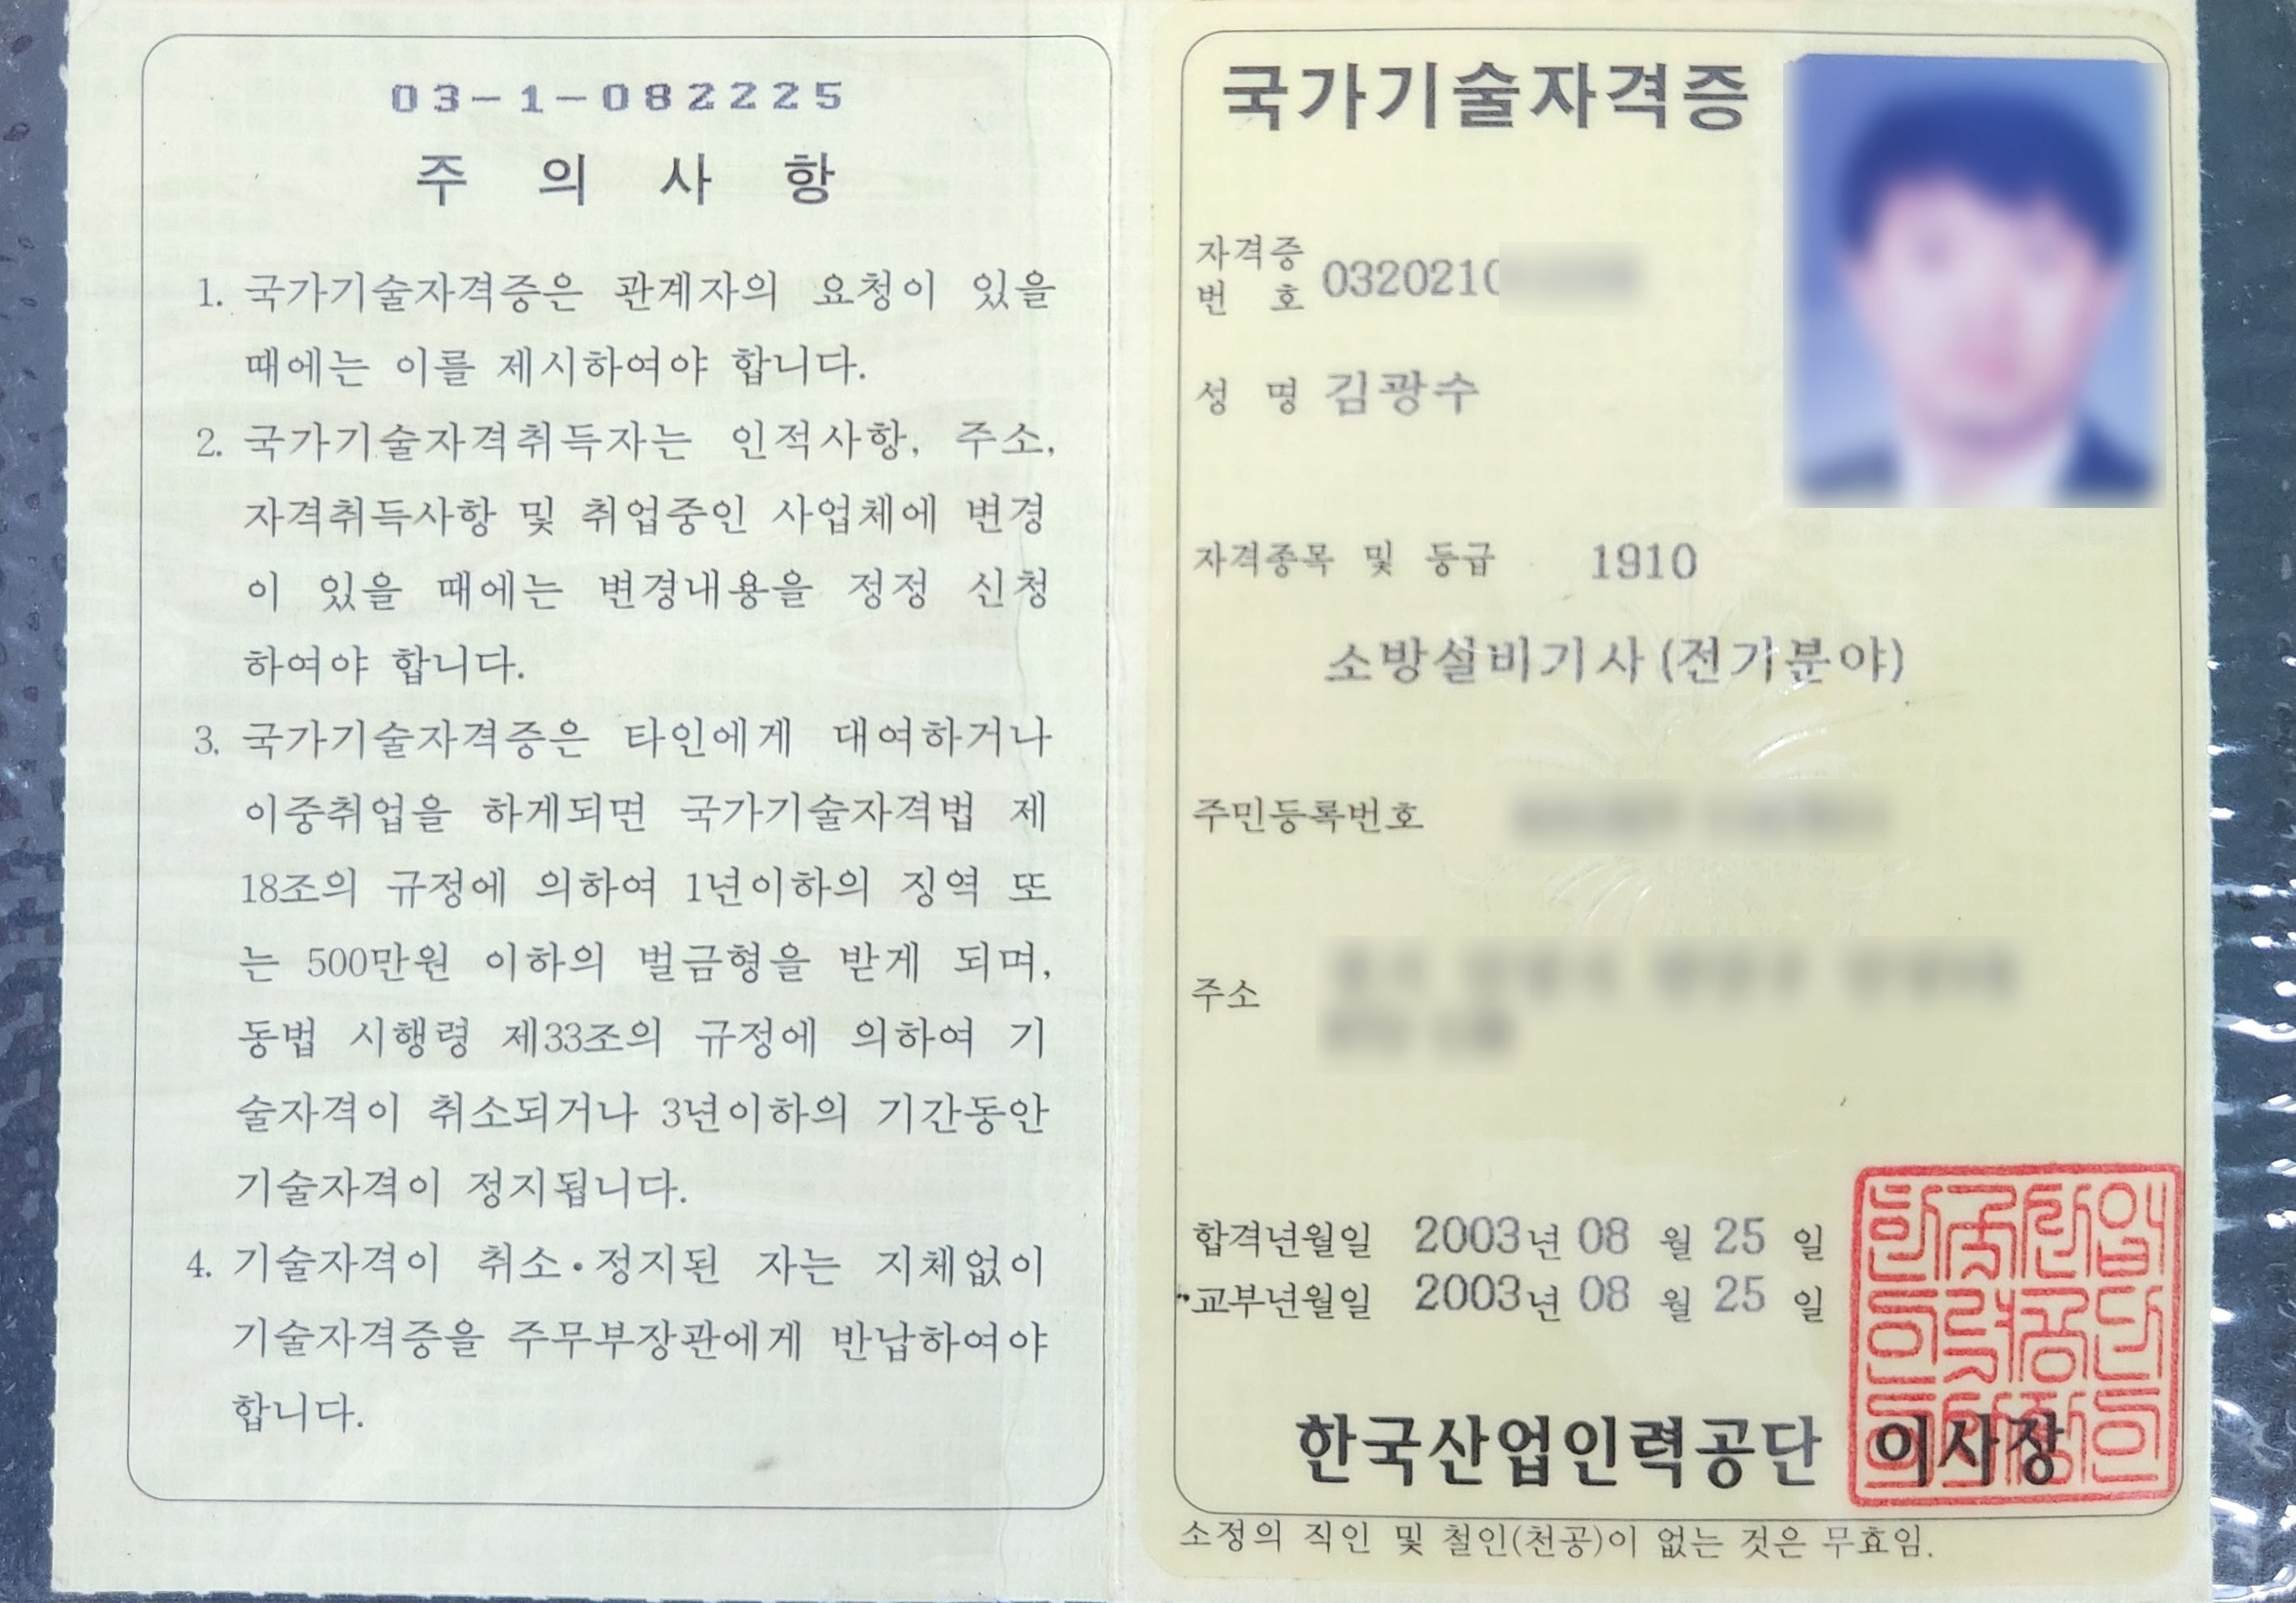 03-1-082225
주 의 사 항
1. 국가기술자격증은 관계자의 요청이 있을
때에는 이를 제시하여야 합니다.
2. 국가기술자격취득자는 인적사항, 주소,
자격취득사항 및 취업중인 사업체에 변경
이 있을 때에는 변경내용을 정정 신청
하여야 합니다.
3. 국가기술자격증은 타인에게 대여하거나
이중취업을 하게되면 국가기술자격법 제
18조의 규정에 의하여 1년이하의 징역 또
는 500만원 이하의 벌금형을 받게 되며,
동법 시행령 제33조의 규정에 의하여 기
술자격이 취소되거나 3년이하의 기간동안
기술자격이 정지됩니다.
4. 기술자격이 취소·정지된 자는 지체없이
기술자격증을 주무부장관에게 반납하여야
합니다.
국가기술자격증
자격증
번 호 0320210
성 명 김광수
자격종목 및 등급 1910
소방설비기사(전기분야)
주민등록번호
주소
합격년월일 2003년 08 월 25 일
교부년월일 2003년 08 월 25 일
한국산업인력공단 이사장
소정의 직인 및 철인(천공)이 없는 것은 무효임.